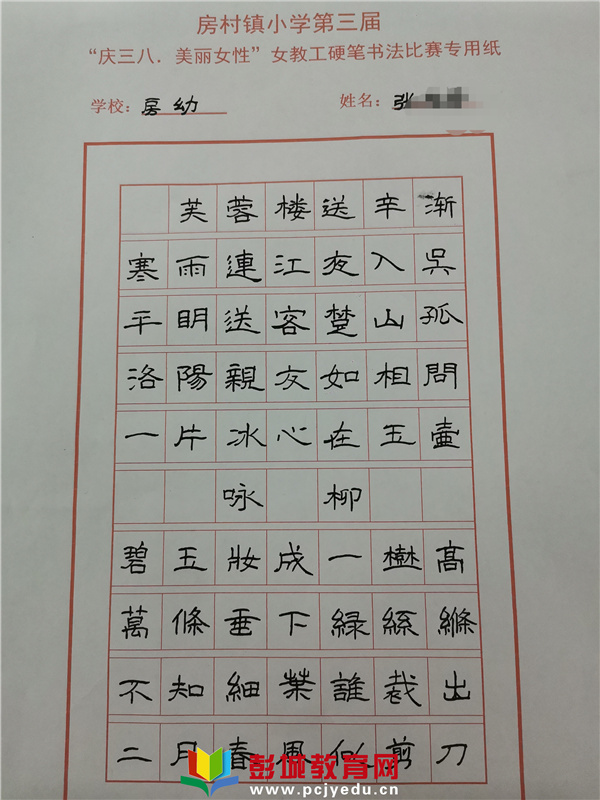 房村镇小学第三届
“庆三八．美丽女性”女教工硬笔书法比赛专用纸
学校：房幼 姓名：张
芙蓉楼送辛渐
寒雨連江夜入吳
平明送客楚山孤
洛陽親友如相問
一片冰心在玉壷
咏柳
碧玉妝成一樹高
萬條垂下緑絲縧
不知細葉誰裁出
二月春風似剪刀
彭城教育网
www.pcjyedu.cn